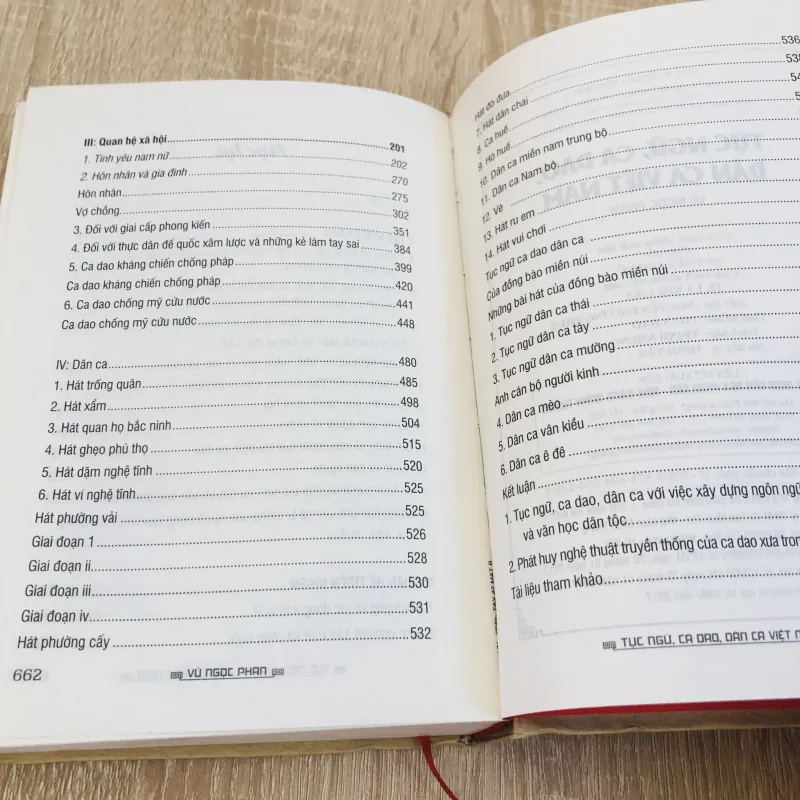 III: Quan hệ xã hội 201
1. Tình yêu nam nữ 202
2. Hôn nhân và gia đình 270
Hôn nhân 275
Vợ chồng 302
3. Đối với giai cấp phong kiến 351
4. Đối với thực dân đế quốc xâm lược và những kẻ làm tay sai 384
5. Ca dao kháng chiến chống pháp 399
Ca dao kháng chiến chống pháp 420
6. Ca dao chống mỹ cứu nước 441
Ca dao chống mỹ cứu nước 448
IV: Dân ca 480
1. Hát trống quân 485
2. Hát xẩm 498
3. Hát quan họ bắc ninh 504
4. Hát ghẹo phú thọ 515
5. Hát dặm nghệ tĩnh 520
6. Hát ví nghệ tĩnh 525
Hát phường vải 525
Giai đoạn 1 526
Giai đoạn ii 528
Giai đoạn iii 530
Giai đoạn iv 531
Hát phường cấy 532
662 VŨ NGỌC PHAN
Hát đò đưa 536
7. Hát dân chài
8. Ca huế
9. Hò huế
10. Dân ca miền nam trung bộ
11. Dân ca Nam bộ
12. Vè
13. Hát ru em
14. Hát vui chơi
Tục ngữ ca dao dân ca
Của đồng bào miền núi
Những bài hát của đồng bào miền núi
1. Tục ngữ dân ca thái
2. Tục ngữ dân ca tày
3. Tục ngữ dân ca mường
Anh cán bộ người kinh
4. Dân ca mèo
5. Dân ca vân kiều
6. Dân ca ê đê
Kết luận
1. Tục ngữ, ca dao, dân ca với việc xây dựng ngôn ngữ
và văn học dân tộc
2. Phát huy nghệ thuật truyền thống của ca dao xưa
Tài liệu tham khảo
TỤC NGỮ, CA DAO, DÂN CA VIỆT